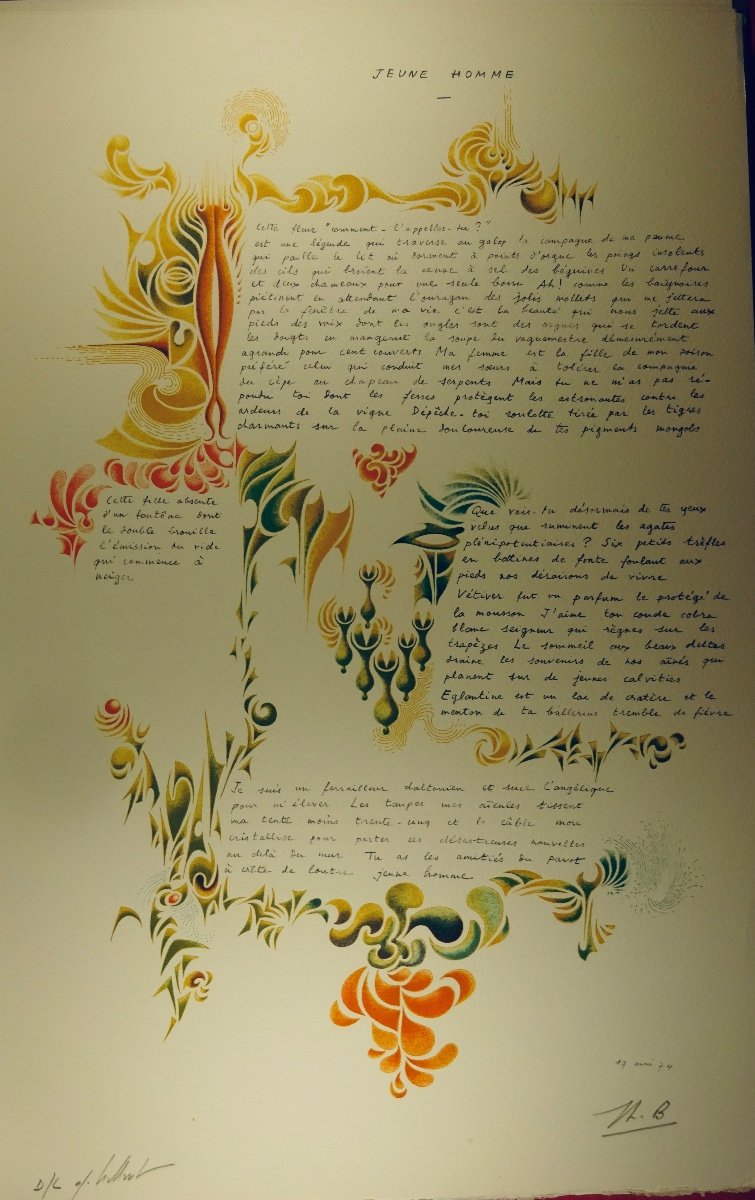 JEUNE HOMME
Cette fleur "comment-l'appelles-tu?"
est une légende qui traverse au galop la campagne de ma paume
qui paille le lit où dorment à points d'orgue les poings insolents
des cils qui broient la canne à sel des béguines Un carrefour
et deux chameaux pour une seule bosse Ah! comme les baignoires
piétinent en attendant l'ouragan des jolis mollets qui me jettera
par la fenêtre de ma vie c'est la beauté qui nous jette aux
pieds des voix dont les ongles sont des orgues qui se tordent
les doigts en mangeant la soupe du vaguemestre démesurément
agrandi pour cent couverts Ma femme est la fille de mon poison
préféré celui qui conduit mes sœurs à tolérer la compagnie
du cèpe au chapeau de serpents Mais tu ne m'as pas ré-
pondu toi dont les fesses protègent les astronautes contre les
ardeurs de la vigne Dépêche-toi roulotte tirée par les tigres
charmants sur la plaine douloureuse de tes pigments mongols
Cette fille absente
d'un fantôme dont
le double brouille
l'émission du vide
qui commence à
neiger
Que vois-tu désormais de tes yeux
velus que ruminent les agates
plénipotentiaires? Six petits trèfles
en bottines de fonte foulant aux
pieds nos déraisons de vivre
Vétiver fut un parfum le protégé de
la mousson J'aime ton coude cobra
blanc seigneur qui règnes sur les
trapèzes Le sommeil aux beaux deltas
draine les souvenirs de nos aînés qui
planent sur de jeunes calvities
Eglantine est un lac de cratère et le
menton de ta ballerine tremble de fièvre
Je suis un ferrailleur daltonien et suce l'angélique
pour m'élever Les taupes mes aïeules tissent
ma tente moins trente-cinq et le câble more
cristallise pour porter ces désastreuses nouvelles
au delà du mur Tu as les amitiés du pavot
à crête de loutre jeune homme
19 mai 74
D/L